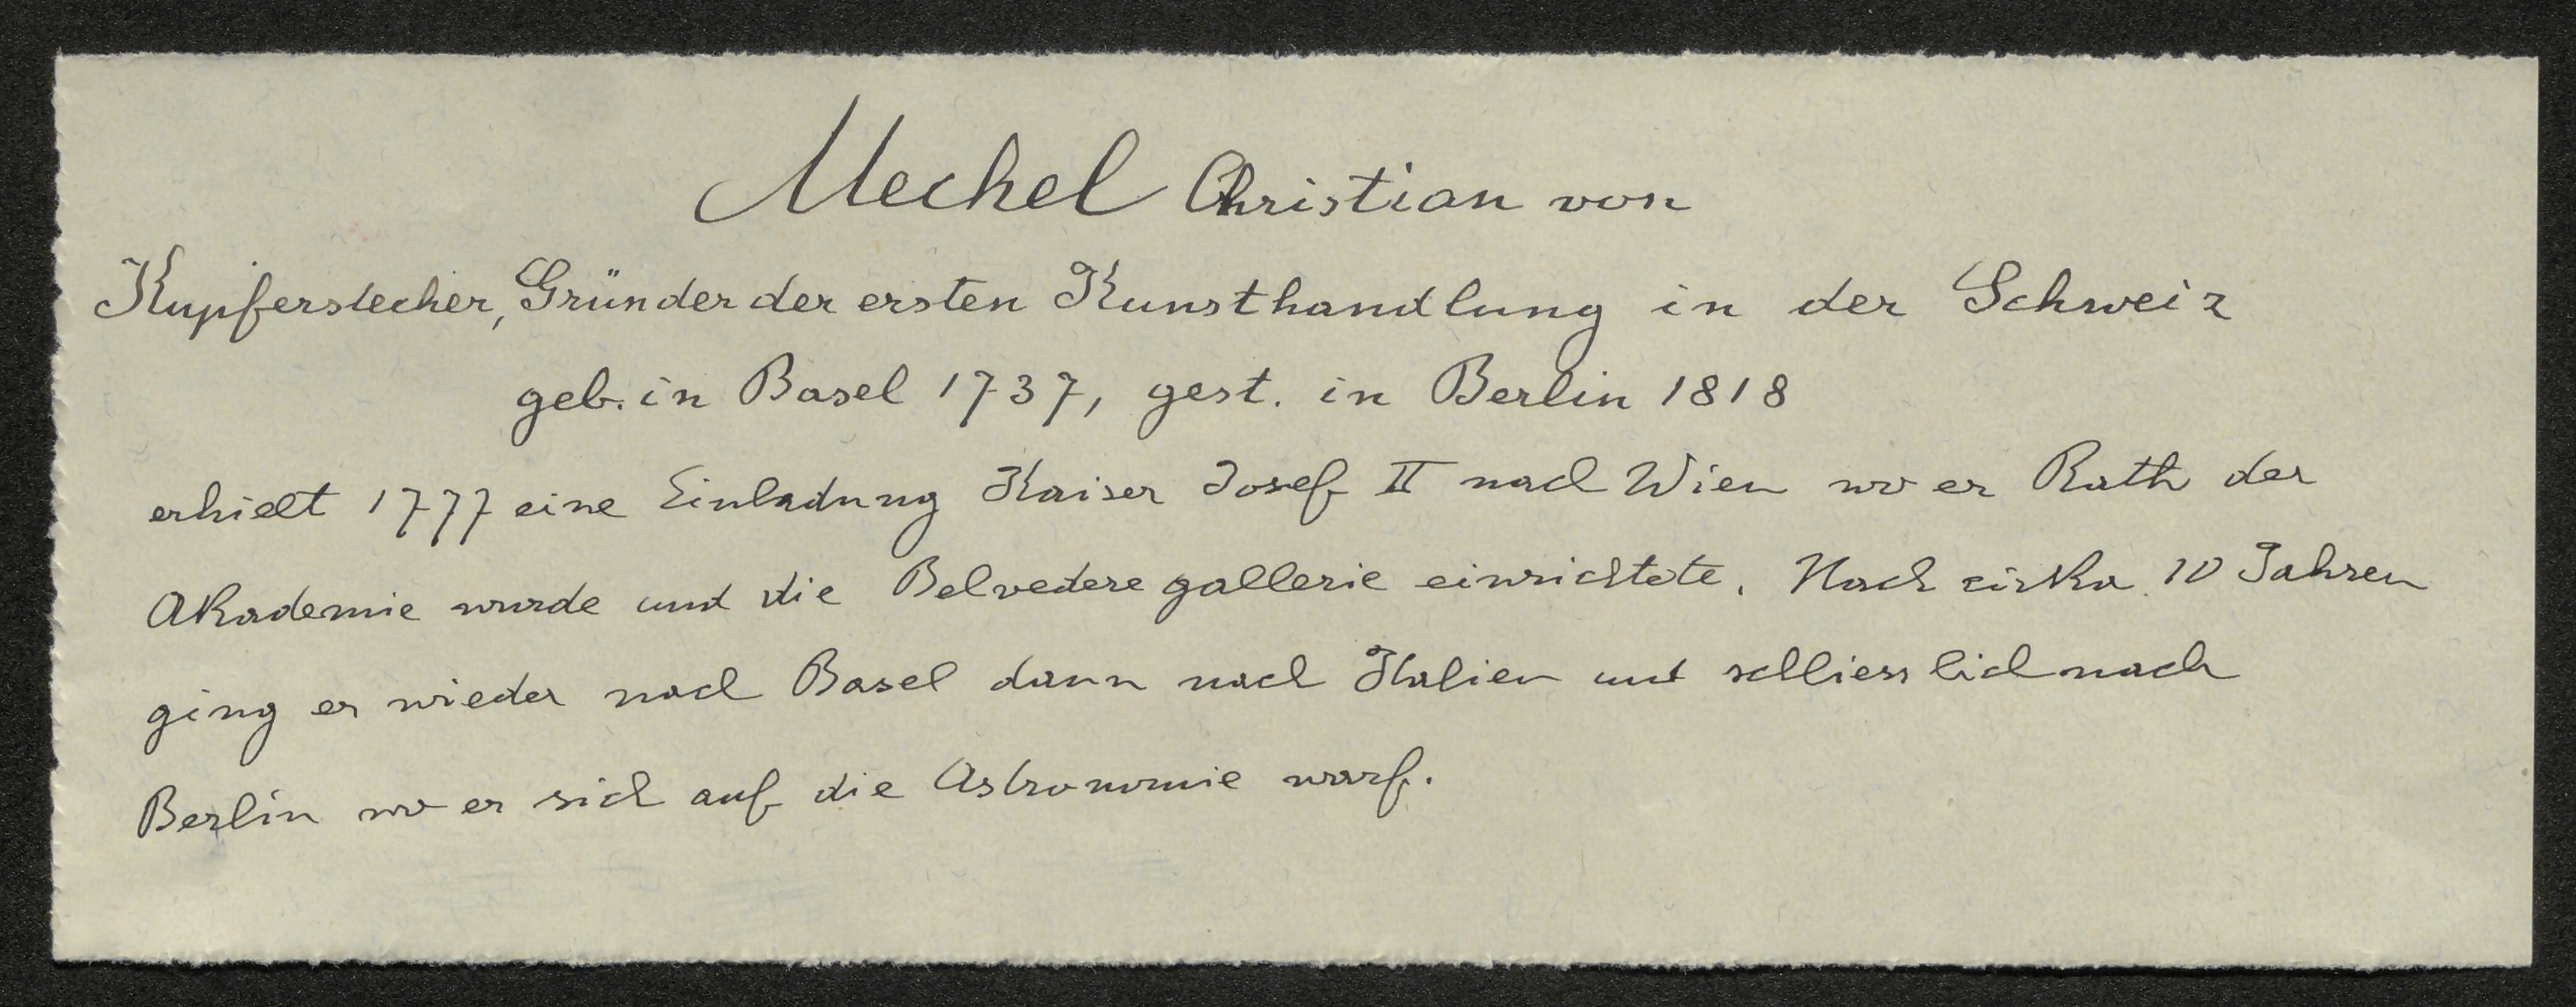 Mechel Christian von
Kupferstecher, Gründer der ersten Kunsthandlung in der Schweiz
geb. in Basel 1737, gest. in Berlin 1818
erhielt 1777 eine Einladung Kaiser Josef II nach Wien wo er Rath der
Akademie wurde und die Belvederegallerie einrichtete. Nach zirka 10 Jahren
ging er wieder nach Basel dann nach Italien und schliesslich nach
Berlin wo er sich auf die Astronomie warf.